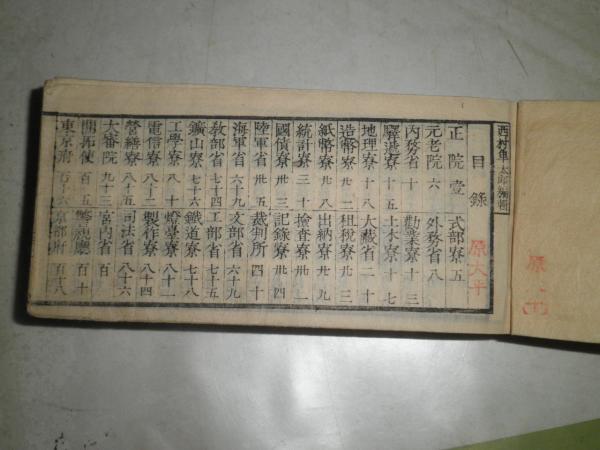 西村隼太郎編輯
目錄
原大平
正院 壹 式部寮 五
元老院 六 外務省 八
內務省 十 勸業寮 十三
驛遞寮 十五 土木寮 十七
地理寮 十八 大藏省 二十
造幣寮 廿二 租稅寮 廿三
紙幣寮 廿八 出納寮 廿九
統計寮 三十 撿查寮 卅一
國債寮 卅四 記錄寮 卅四
陸軍省 卅五 裁判所 四十
海軍省 六十九 文部省 六十九
敎部省 七十四 工部省 七十五
鑛山寮 七十六 鐵道寮 七十八
工學寮 八十 燈臺寮 八十一
電信寮 八十二 製作寮 八十四
營繕寮 八十五 司法省 八十六
大審院 九十三 宮內省 百
開拓使 百五 警視廳 百十
東京府 百十六 京都府 百十八
原